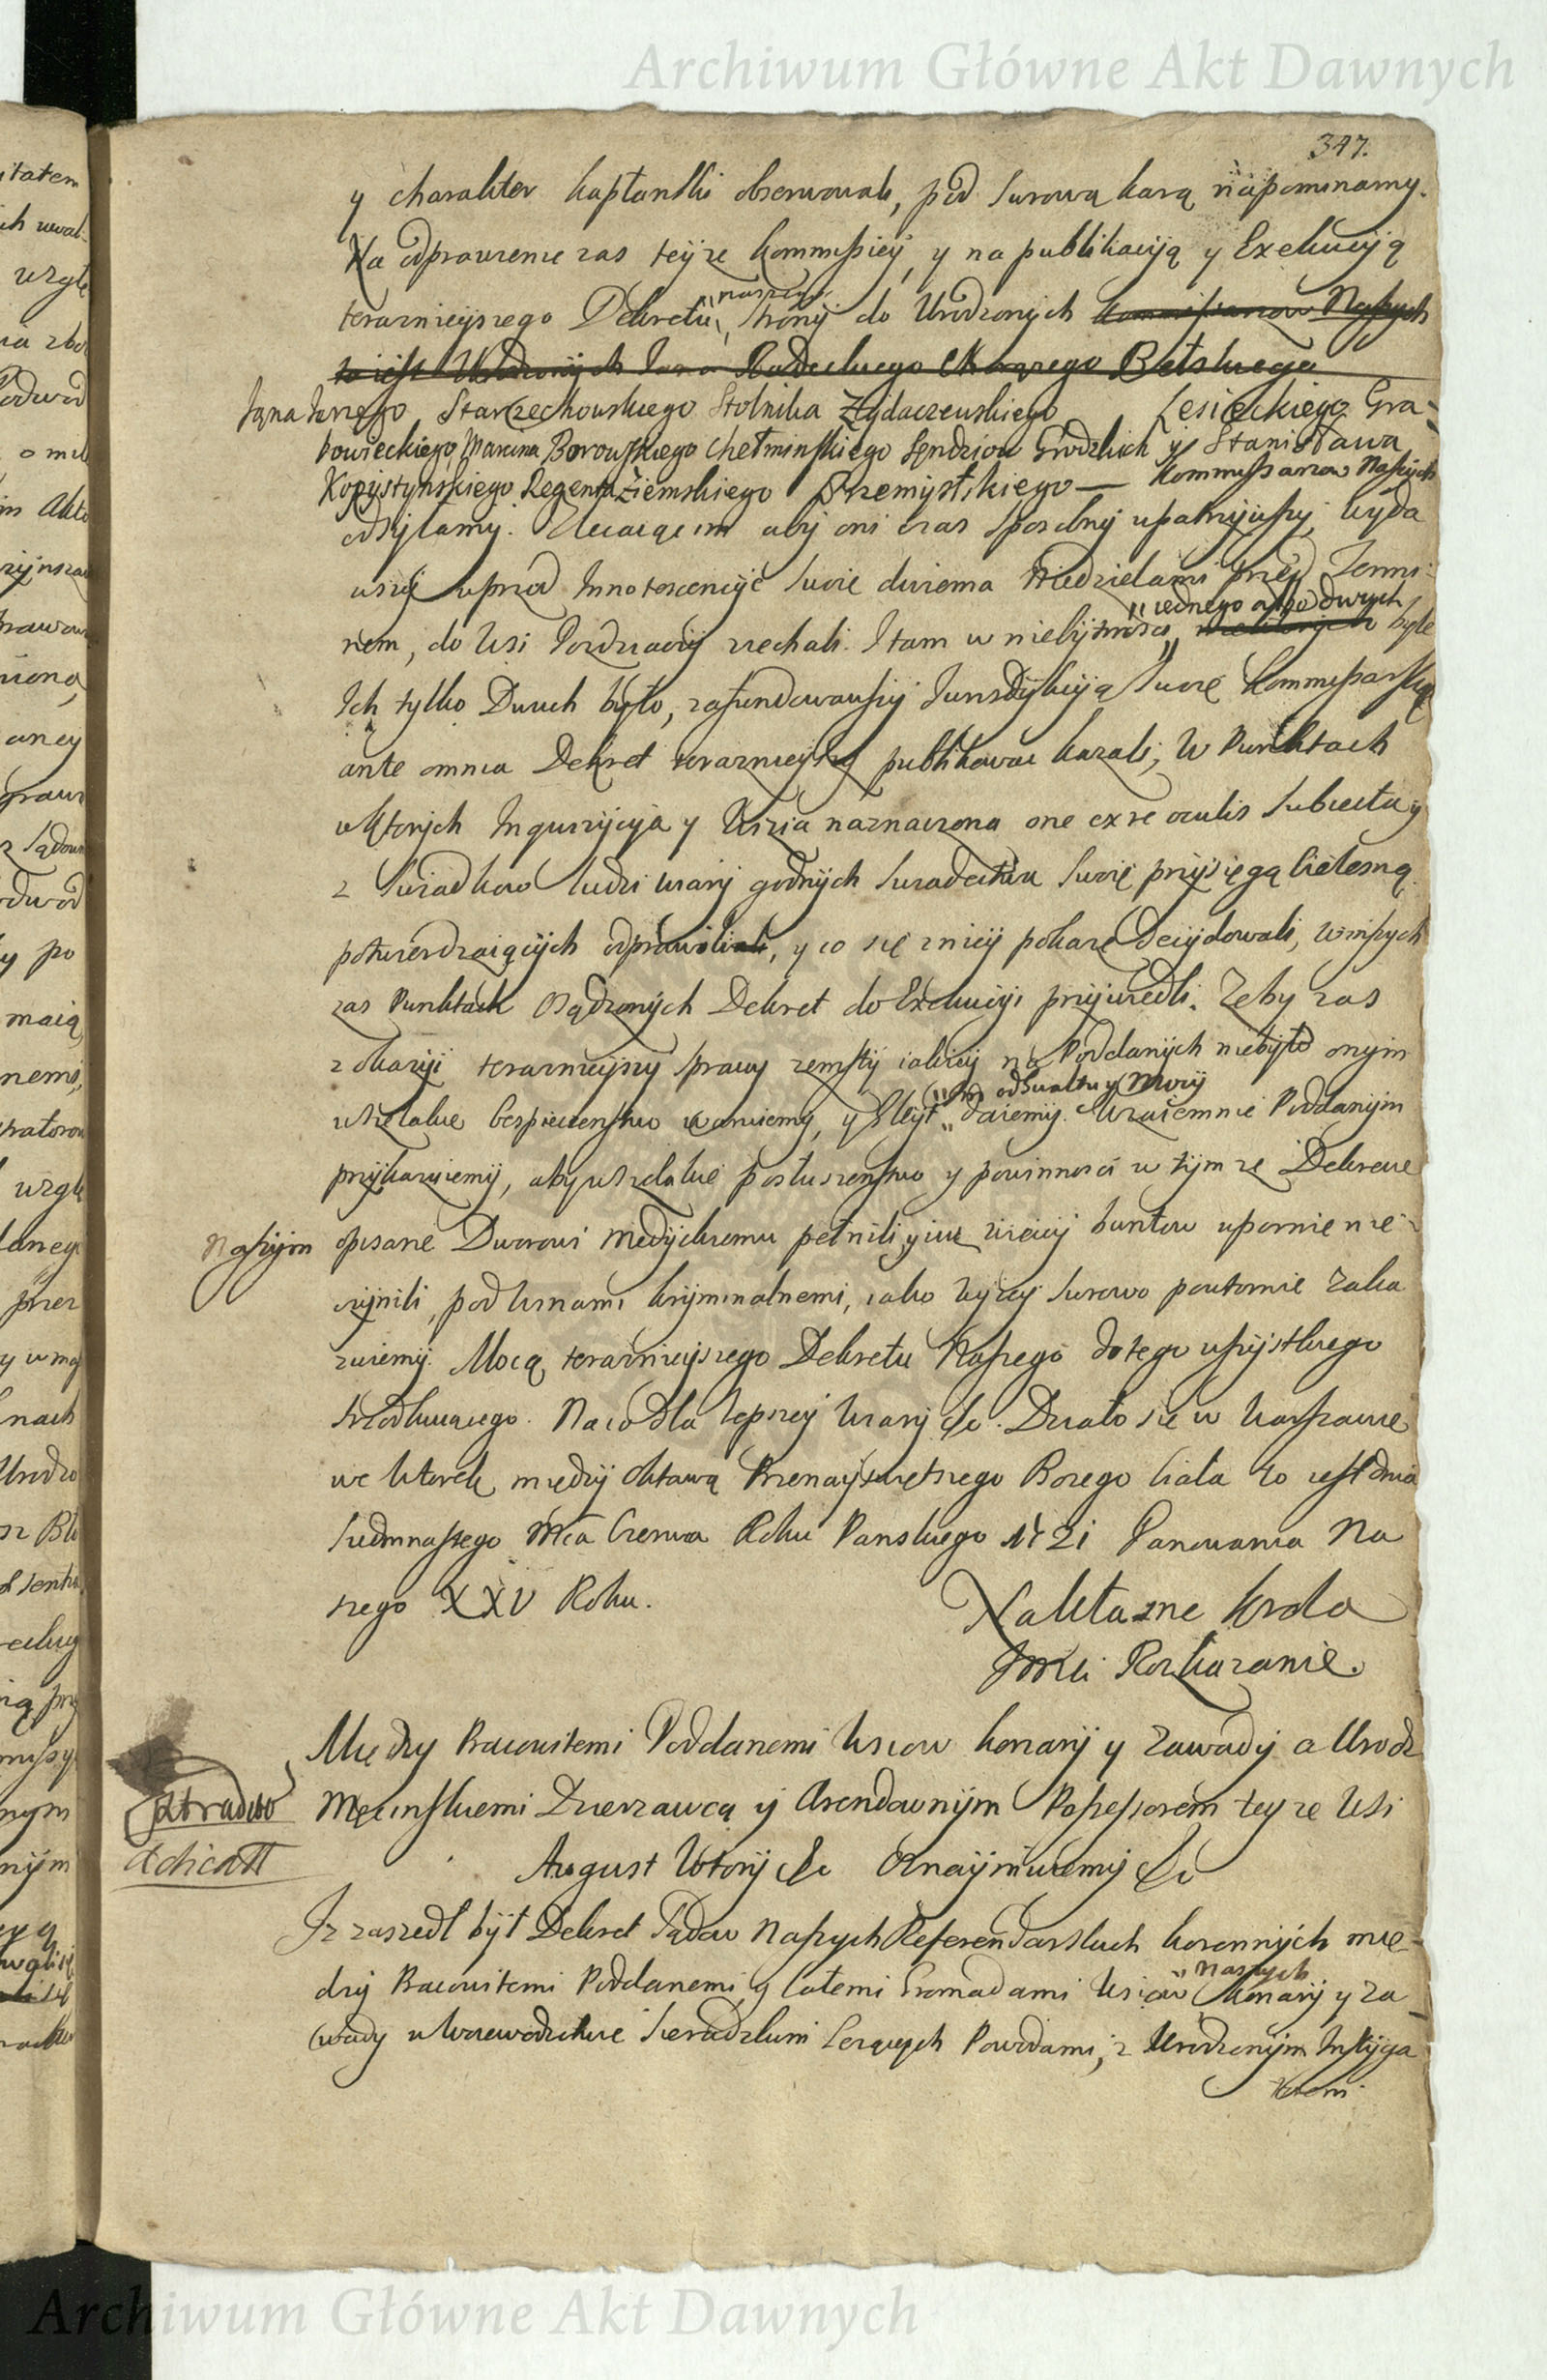 Archiwum Główne Akt Dawnych
347.
y charakter kapłanski obserwowali, pod surową karą napominamy.
Na odprawienie zas teyże Kommissiey, y na publikacyią y Exekucyią
teraznieyszego Dekretu naszego, Strony do Urodzonych Kommissarzow Naszych
to iest Urodzonych Jana Radeckiego Chorązego Bełskiego
Jana Jerzego Starzechowskiego Stolnika Zydaczewskiego Lesieckiego Gra-
bowieckiego, Marcina Borowskiego Chełminskiego Sendziow Grodzkich y Stanisława
Kopystynskiego Regenta Ziemskiego Przemyslskiego — Kommissarzow Naszych
odsyłamy. Zlecaiąc im aby oni czas sposobny upatrzywszy, wyda
wszy wprzod Innotescencyie swoie dwiema Niedzielami przed Termi-
nem, do Wsi Pozdziaczy ziechali. I tam w niebytnosci „iednego albo dwuch byle
Ich tylko Dwuch było, zafundowawszy Jurisdykcyią swoię Kommissarską
ante omnia Dekret teraznieyszy publikować kazali; W Punktach
w ktorych Inquizycyia y Wizia naznaczona one ex re oculis subiecta y
z Swiadkow ludzi wiary godnych swiadectwa swoię przysięgą cielesną
potwierdzaiących odprawili, y co się z niey pokaze Decydowali, w inszych
zas Punktach Osądzonych Dekret do Exekucyi przywiedli. Zeby zas
z okazyi teraznieyszy sprawy zemsty iakiey na Poddanych niebyło onym
wszelakie bespieczenstwo waruiemy, y Gleyt „im od Gwałtu y Mocy daiemy. Wzaiemnie Poddanym
przykazuiemy, aby wszelakie posłuszenstwo y powinnosci w tymze Dekrecie
Naszym opisane Dworowi Medyckiemu pełnili y iuz więcey buntow upornie nie
czynili, pod winami kryminalnemi, iako wyzey surowo powtornie zaka
zuiemy. Mocą teraznieyszego Dekretu Naszego do tego wszystkiego
srzodkuiącego. Na co dla lepszey wiary &c. Działo się w Warszawie
we Wtorek między Oktawą Przenayswiętszego Bozego Ciała to iest dnia
Siedmnastego Mca Czerwca Roku Panskiego 1721 Panowania Na
szego XXV Roku.
Na Własne Krola
JMci Rozkazanie.
Między Pracowitemi Poddanemi Wsiow Konary y Zawady a Urodz
Męcinskiemi Dzierzawcą y Arendownym Possessorem teyze Wsi
Extradito
August Wtory &c Oznaymuiemy &c
Iz zaszedł był Dekret Sądow Naszych Referendarskich Koronnych mię-
dzy Pracowitemi Poddanemi y Całemi Gromadami Wsiow „Naszych Konary y Za
wady w Woiewodztwie Sieradzkim lezących Powodami, z Urodzonym Instyga
torem
Archiwum Główne Akt Dawnych